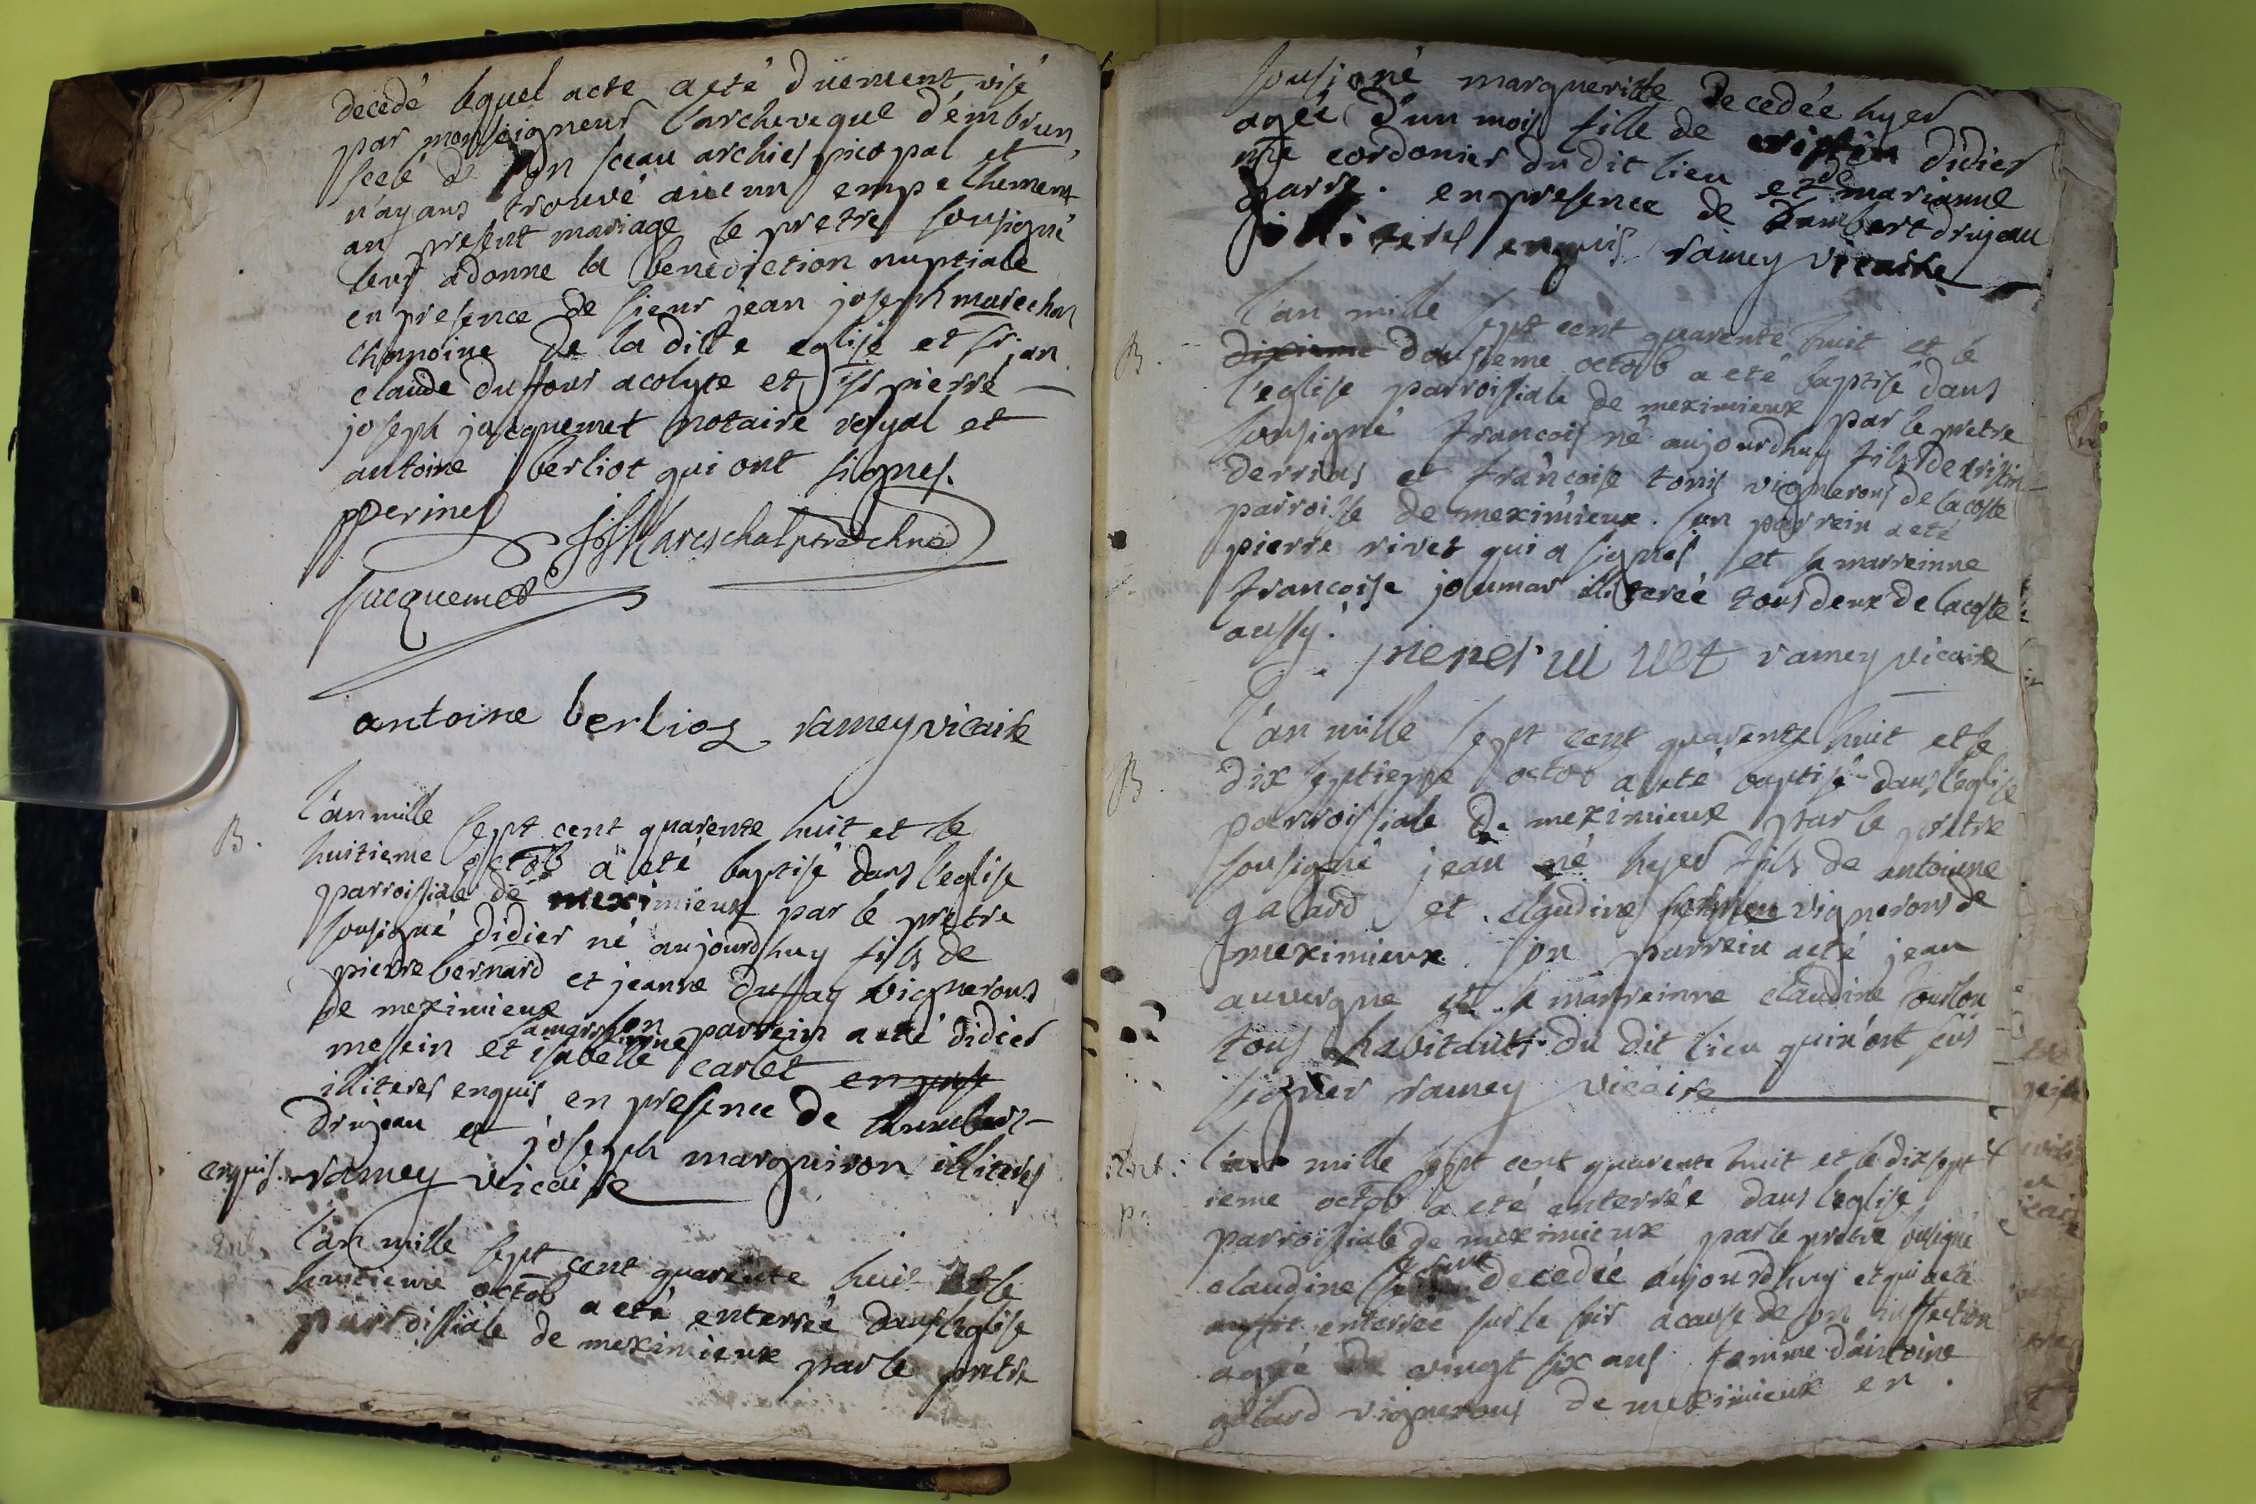 decedé lequel acte a eté düement visé
par monseigneur l'archeveque d'embrun,
scelé de son sceau archiepiscopal et
n'ayans trouvé aucuns empechement
au present mariage le pretre sousigné
leur a donne la benediction nuptiale
en presence de sieur jean joseph marechan
chanoine de la ditte eglise et sr. jan
claude duffour acolyte et sr pierre
joseph jacquemet notaire royal et
antoine berliot qui ont signes.
pperines
JJMareschal ptre chne
Jacquemet
antoine berlioz ramey vicaire
B.
l'an mille sept cent quarente huit et le
huitieme octob a eté baptisé dans l'eglise
parroissiale de meximieux par le pretre
sousigné didier né aujourdhuy fils de
pierre bernard et jeanne duffay vignerons
de meximieux son parrein a eté didier
messein et sa marreinne isabelle carlet
illiteres enquis en presence de
drujeau et joseph marguiron illiteres
enquis. ramey vicaire
Ent.
l'an mille sept cent quarente huit et le
huitieme octob a eté enterrée dans l'eglise
parroissiale de meximieux par le pretre
sousigné marguerite decedée hyer
agée d'un mois fille de didier
mre cordonier du dit lieu et de marianne
garre. en presence de humbert drujeau
illiteres enquis ramey vicaire
B.
l'an mille sept cent quarente huit et le
dixieme dousieme octob a eté baptisé dans
l'eglise parroissiale de meximieux par le pretre
sousigné francois né aujourdhuy fils de
derrias et francoise tonis vignerons de la coste
parroisse de meximieux. son parrein a eté
pierre rivet qui a signes et sa marreinne
francoise joumar illiterée tous deux de la coste
aussy.
pieres ri vet ramey vicaire
B.
l'an mille sept cent quarente huit et le
dix septieme octob a eté baptisé dans l'eglise
parroissiale de meximieux par le pretre
sousigné jean né hyer fils de antoinne
galard et claudine vignerons de
meximieux son parrein a eté jean
auvergne et sa marreinne claudine tourlon
tous habitants du dit lieu qui n'ont sus
signer ramey vicaire
Ent.
l'an mille sept cent quarente huit et le dix sept
ieme octob a eté enterrée dans l'eglise
parroissiale de meximieux par le pretre sousigné
claudine decedée aujourdhuy et qui a eté
enterrée sur le soir a cause de son infection
agée de vingt six ans femme d'antoine
galard vignerons de meximieux en